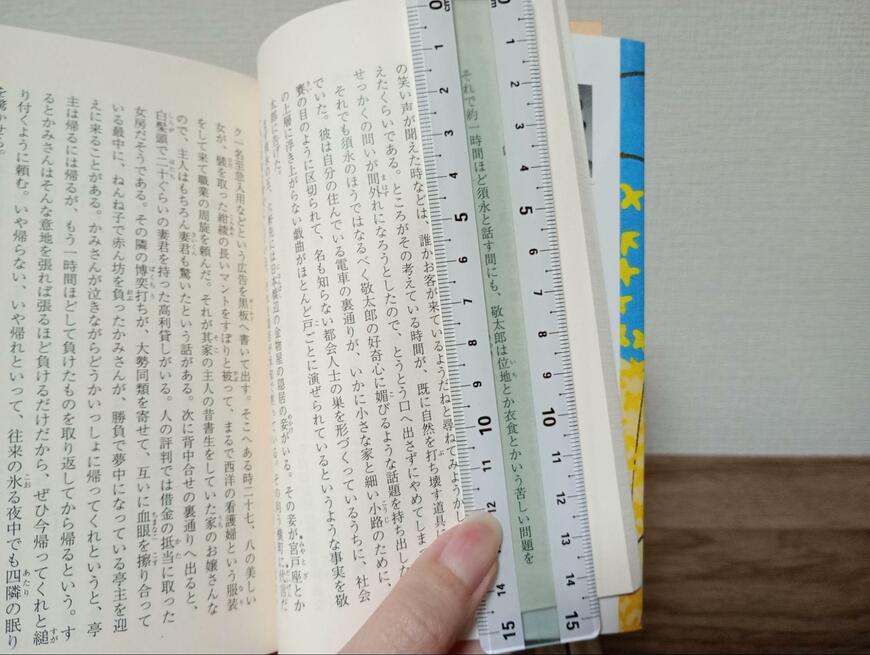 それで約一時間ほど須永と話す間にも、敬太郎は位地とか衣食とかいう苦しい問題を
の笑い声が聞えた時などは、誰かお客が来ているようだねと尋ねてみようかし
えたくらいである。ところがその考えている時間が、既に自然を打ち壊す道具に
せっかくの問いが間外れになろうとしたので、とうとう口へ出さずにやめてしま
それでも須永のほうではなるべく敬太郎の好奇心に媚びるような話題を持ち出した
でいた。彼は自分の住んでいる電車の裏通りが、いかに小さな家と細い小路のために、
賽の目のように区切られて、名も知らない都会人士の巣を形づくっているうちに、社会
の上層に浮き上がらない戯曲がほとんど戸ごとに演ぜられているというような事実を敬
太郎に告げた。
軒先には日本橋辺の金物屋の隠居の妾がいる。その妾が宮戸座とか
いる。その向う横町に代言だ
ク一名至急入用などという広告を黒板へ書いて出す。そこへある時二十七、八の美しい
女が、襞を取った紺綾の長いマントをすぽりと被って、まるで西洋の看護婦という服装
をして来て職業の周旋を頼んだ。それが其家の主人の昔書生をしていた家のお嬢さんな
ので、主人はもちろん妻君も驚いたという話がある。次に背中合せの裏通りへ出ると、
白髪頭で二十ぐらいの妻君を持った高利貸しがいる。人の評判では借金の抵当に取った
女房だそうである。その隣の博奕打ちが、大勢同類を寄せて、互いに血眼を擦り合って
いる最中に、ねんね子で赤ん坊を負ったかみさんが、勝負で夢中になっている亭主を迎
えに来ることがある。かみさんが泣きながらどうかいっしょに帰ってくれというと、亭
主は帰るには帰るが、もう一時間ほどして負けたものを取り返してから帰るという。す
るとかみさんはそんな意地を張れば張るほど負けるだけだから、ぜひ今帰ってくれと縋
り付くように頼む。いや帰らない、いや帰れといって、往来の氷る夜中でも四隣の眠り
を驚かせる。
0 cm 1 2 3 4 5 6 7 8 9 10 11 12 15
0 cm 1 2 3 4 5 6 7 8 9 10 11 12 13 14 15